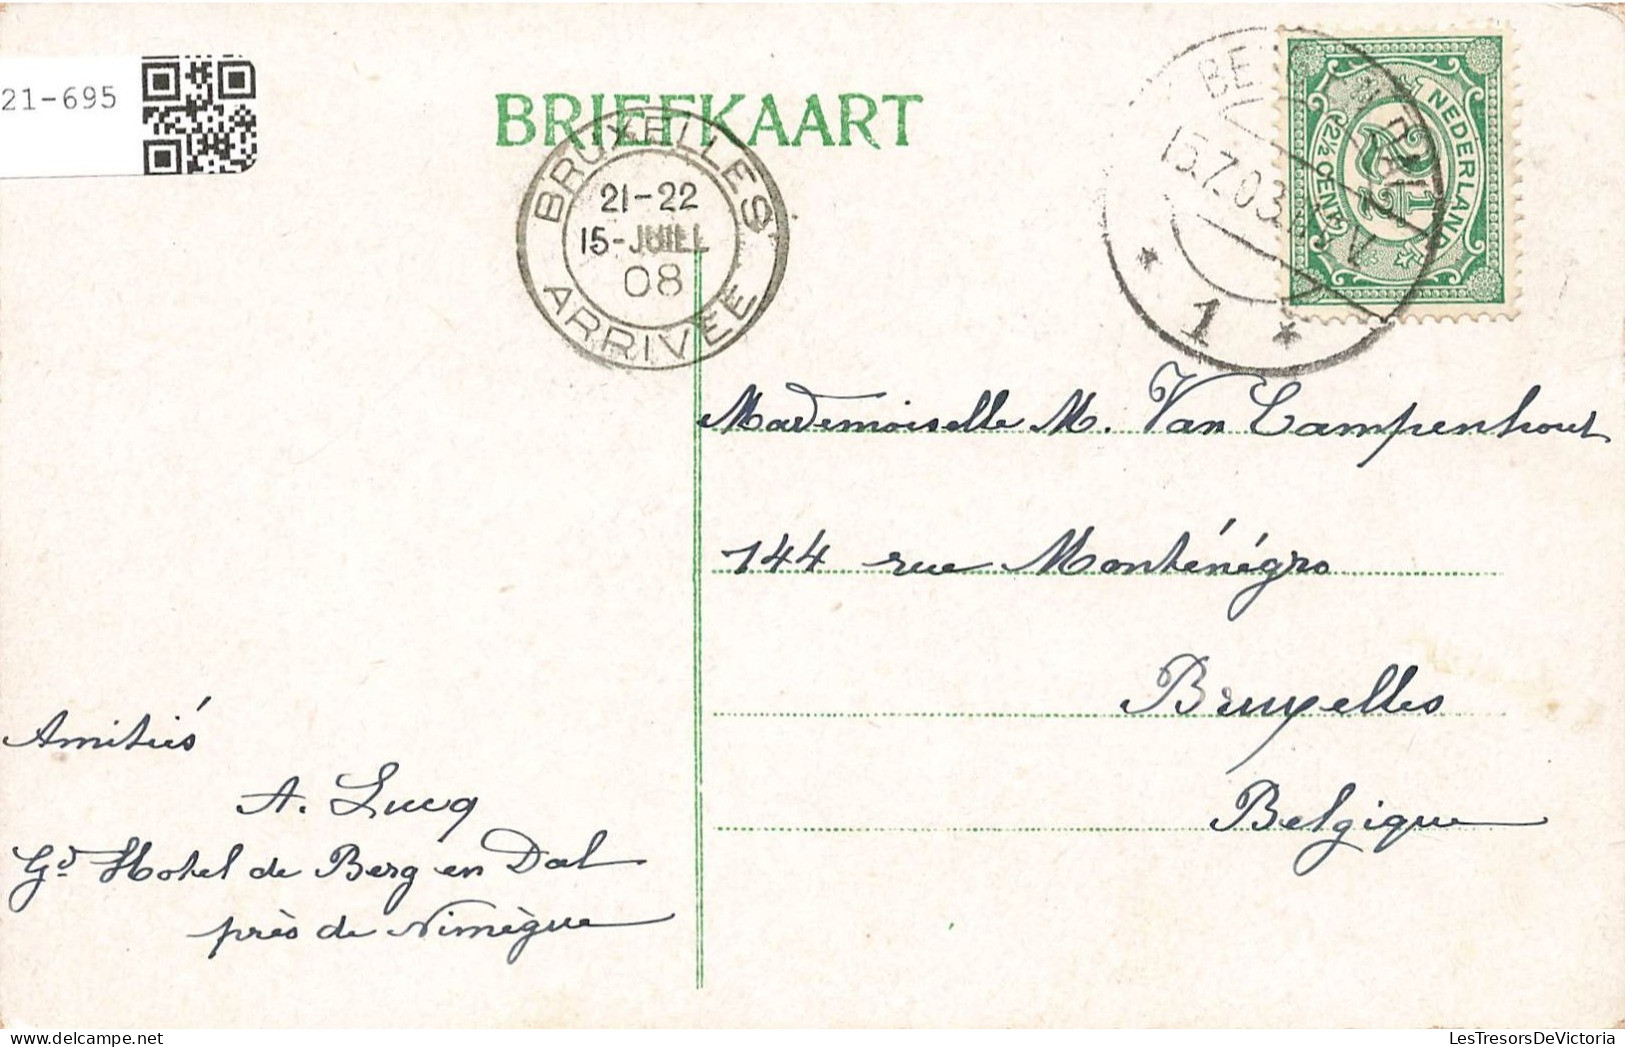 21-695
BRIEFKAART
BRUXELLES
21-22
15-JUILL
08
ARRIVEE
1
NEDERLAND
2½
2½ CENT
Mademoiselle M. Van Campenhout
144 rue Monténégro
Bruxelles
Belgique
Amitiés
A. Lucq
Gd Hotel de Berg en Dal
près de Nimègue
LesTresorsDeVictoria